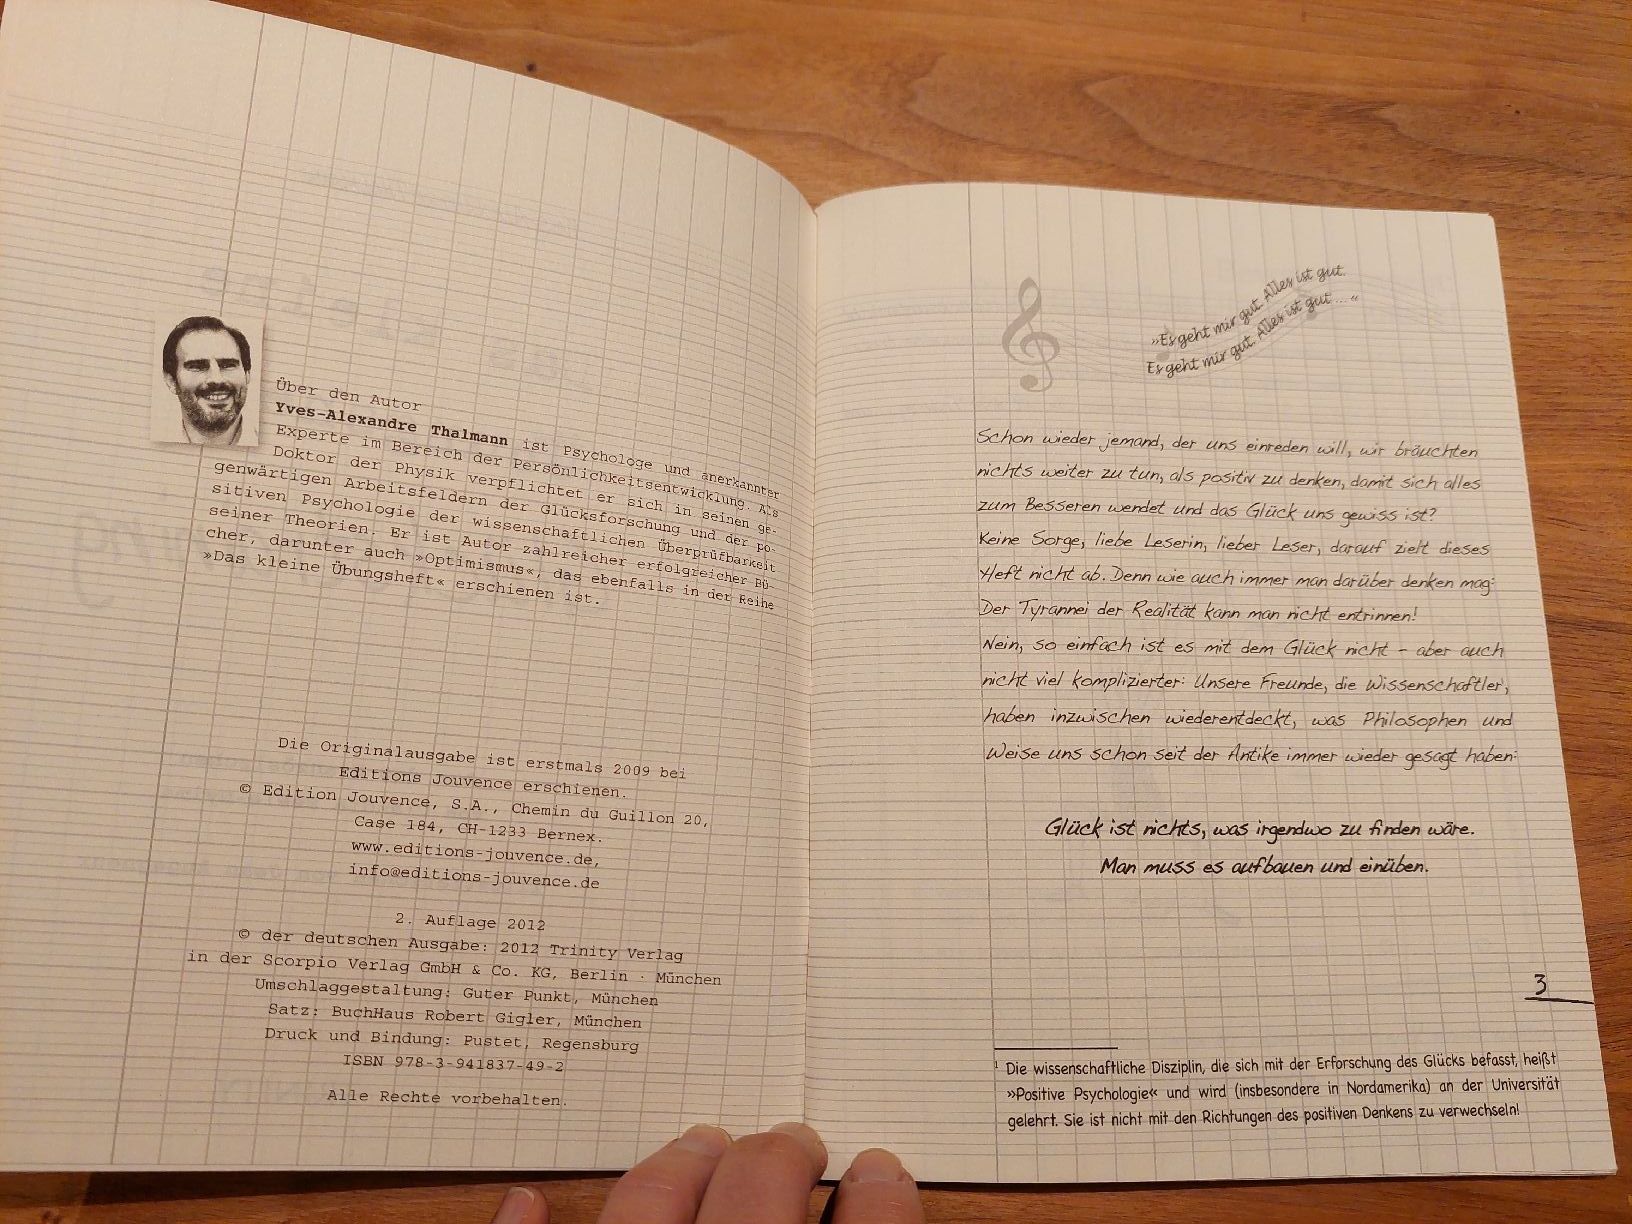 Über den Autor
Yves-Alexandre Thalmann ist Psychologe und anerkannter
Experte im Bereich der Persönlichkeitsentwicklung. Als
Doktor der Physik verpflichtet er sich in seinen ge-
genwärtigen Arbeitsfeldern der Glücksforschung und der po-
sitiven Psychologie der wissenschaftlichen Überprüfbarkeit
seiner Theorien. Er ist Autor zahlreicher erfolgreicher Bü-
cher, darunter auch »Optimismus«, das ebenfalls in der Reihe
»Das kleine Übungsheft« erschienen ist.
Die Originalausgabe ist erstmals 2009 bei
Editions Jouvence erschienen.
© Edition Jouvence, S.A., Chemin du Guillon 20,
Case 184, CH-1233 Bernex.
www.editions-jouvence.de,
info@editions-jouvence.de
2. Auflage 2012
© der deutschen Ausgabe: 2012 Trinity Verlag
in der Scorpio Verlag GmbH & Co. KG, Berlin · München
Umschlaggestaltung: Guter Punkt, München
Satz: BuchHaus Robert Gigler, München
Druck und Bindung: Pustet, Regensburg
ISBN 978-3-941837-49-2
Alle Rechte vorbehalten.
»Es geht mir gut. Alles ist gut.
Es geht mir gut. Alles ist gut ...«
Schon wieder jemand, der uns einreden will, wir bräuchten
nichts weiter zu tun, als positiv zu denken, damit sich alles
zum Besseren wendet und das Glück uns gewiss ist?
Keine Sorge, liebe Leserin, lieber Leser, darauf zielt dieses
Heft nicht ab. Denn wie auch immer man darüber denken mag:
Der Tyrannei der Realität kann man nicht entrinnen!
Nein, so einfach ist es mit dem Glück nicht – aber auch
nicht viel komplizierter: Unsere Freunde, die Wissenschaftler¹,
haben inzwischen wiederentdeckt, was Philosophen und
Weise uns schon seit der Antike immer wieder gesagt haben:
Glück ist nichts, was irgendwo zu finden wäre.
Man muss es aufbauen und einüben.
3
¹ Die wissenschaftliche Disziplin, die sich mit der Erforschung des Glücks befasst, heißt
»Positive Psychologie« und wird (insbesondere in Nordamerika) an der Universität
gelehrt. Sie ist nicht mit den Richtungen des positiven Denkens zu verwechseln!